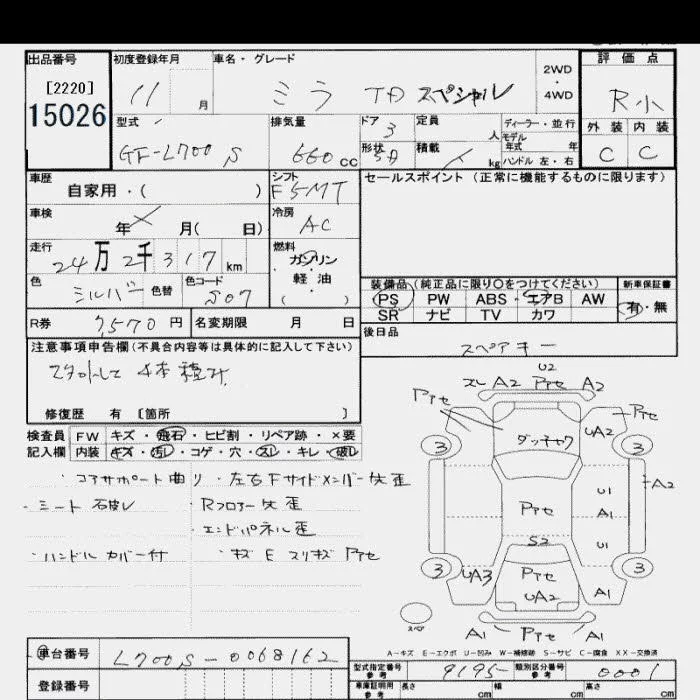 出品番号 初度登録年月 車名・グレード 評価点
[2220] 11 月 ミラ TAスペシャル 2WD・4WD R小
15026
型式 排気量 ドア 定員 ディーラー・並行
GF-L700S 660cc 3 人 モデル年式 年 外装 内装
形状 5D 積載 kg ハンドル 左・右 C C
車歴 シフト セールスポイント(正常に機能するものに限ります)
自家用・( ) F5MT
車検 年 月( 日) 冷房 AC
走行 燃料
24万2千317km ガソリン
色 シルバー 色替 色コード S07 軽油
( )
装備品(純正品に限り○をつけてください) 新車保証書
PS PW ABS エアB AW 有・無
SR ナビ TV カワ
R券 7,570円 名変期限 月 日 後日品
スペアキー
注意事項申告欄(不具合内容等は具体的に記入して下さい)
スタットレス 4本積み
修復歴 有 [箇所 ]
検査員 FW キズ・飛石・ヒビ割・リペア跡・×要
記入欄 内装 キズ・汚レ・コゲ・穴・スレ・キレ・破レ
・コアサポート曲り ・左右Fサイドメンバー 歪
・シート 破レ ・Rフロアー 歪
・エンドパネル歪
・ハンドルカバー付 ・キズ E スリキズ Pアセ
U2
スレ A2 Pアセ A2
Pアセ Pアセ
UA2
3 ダッチャク 3
A2
U1
Pアセ A1
S2 U1
3 UA3 Pアセ 3
UA2 A1
スペア
A1 Pアセ A1
A-キズ E-エクボ U-凹み W-補修跡 S-サビ C-腐食 XX-交換済
車台番号 L700S-0068162 型式指定番号 参考 9195 類別区分番号 参考 0001
登録番号 車庫証明用 参考 長さ cm 幅 cm 高さ cm